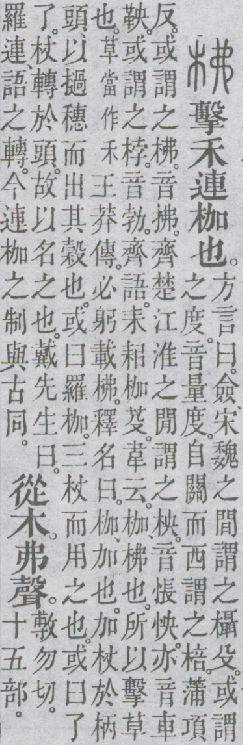 柫擊禾連枷也。方言曰。僉宋魏之閒謂之欇殳。或謂
之度。音量度。自關而西謂之棓。蒲項
反。或謂之柫。音拂。齊楚江淮之閒謂之柍。音悵怏。亦音車
鞅。或謂之桲。音勃。齊語。耒耜枷芟。韋云。枷、柫也。所以擊草
也。草當作禾。王莽傳。必躬載柫。釋名曰。枷、加也。加杖於柄
頭。以撾穗而出其穀也。或曰羅枷。三杖而用之也。或曰了
了。杖轉於頭。故以名之也。戴先生曰。
羅連、語之轉。今連枷之制與古同。
從木弗聲。敷勿切。
十五部。